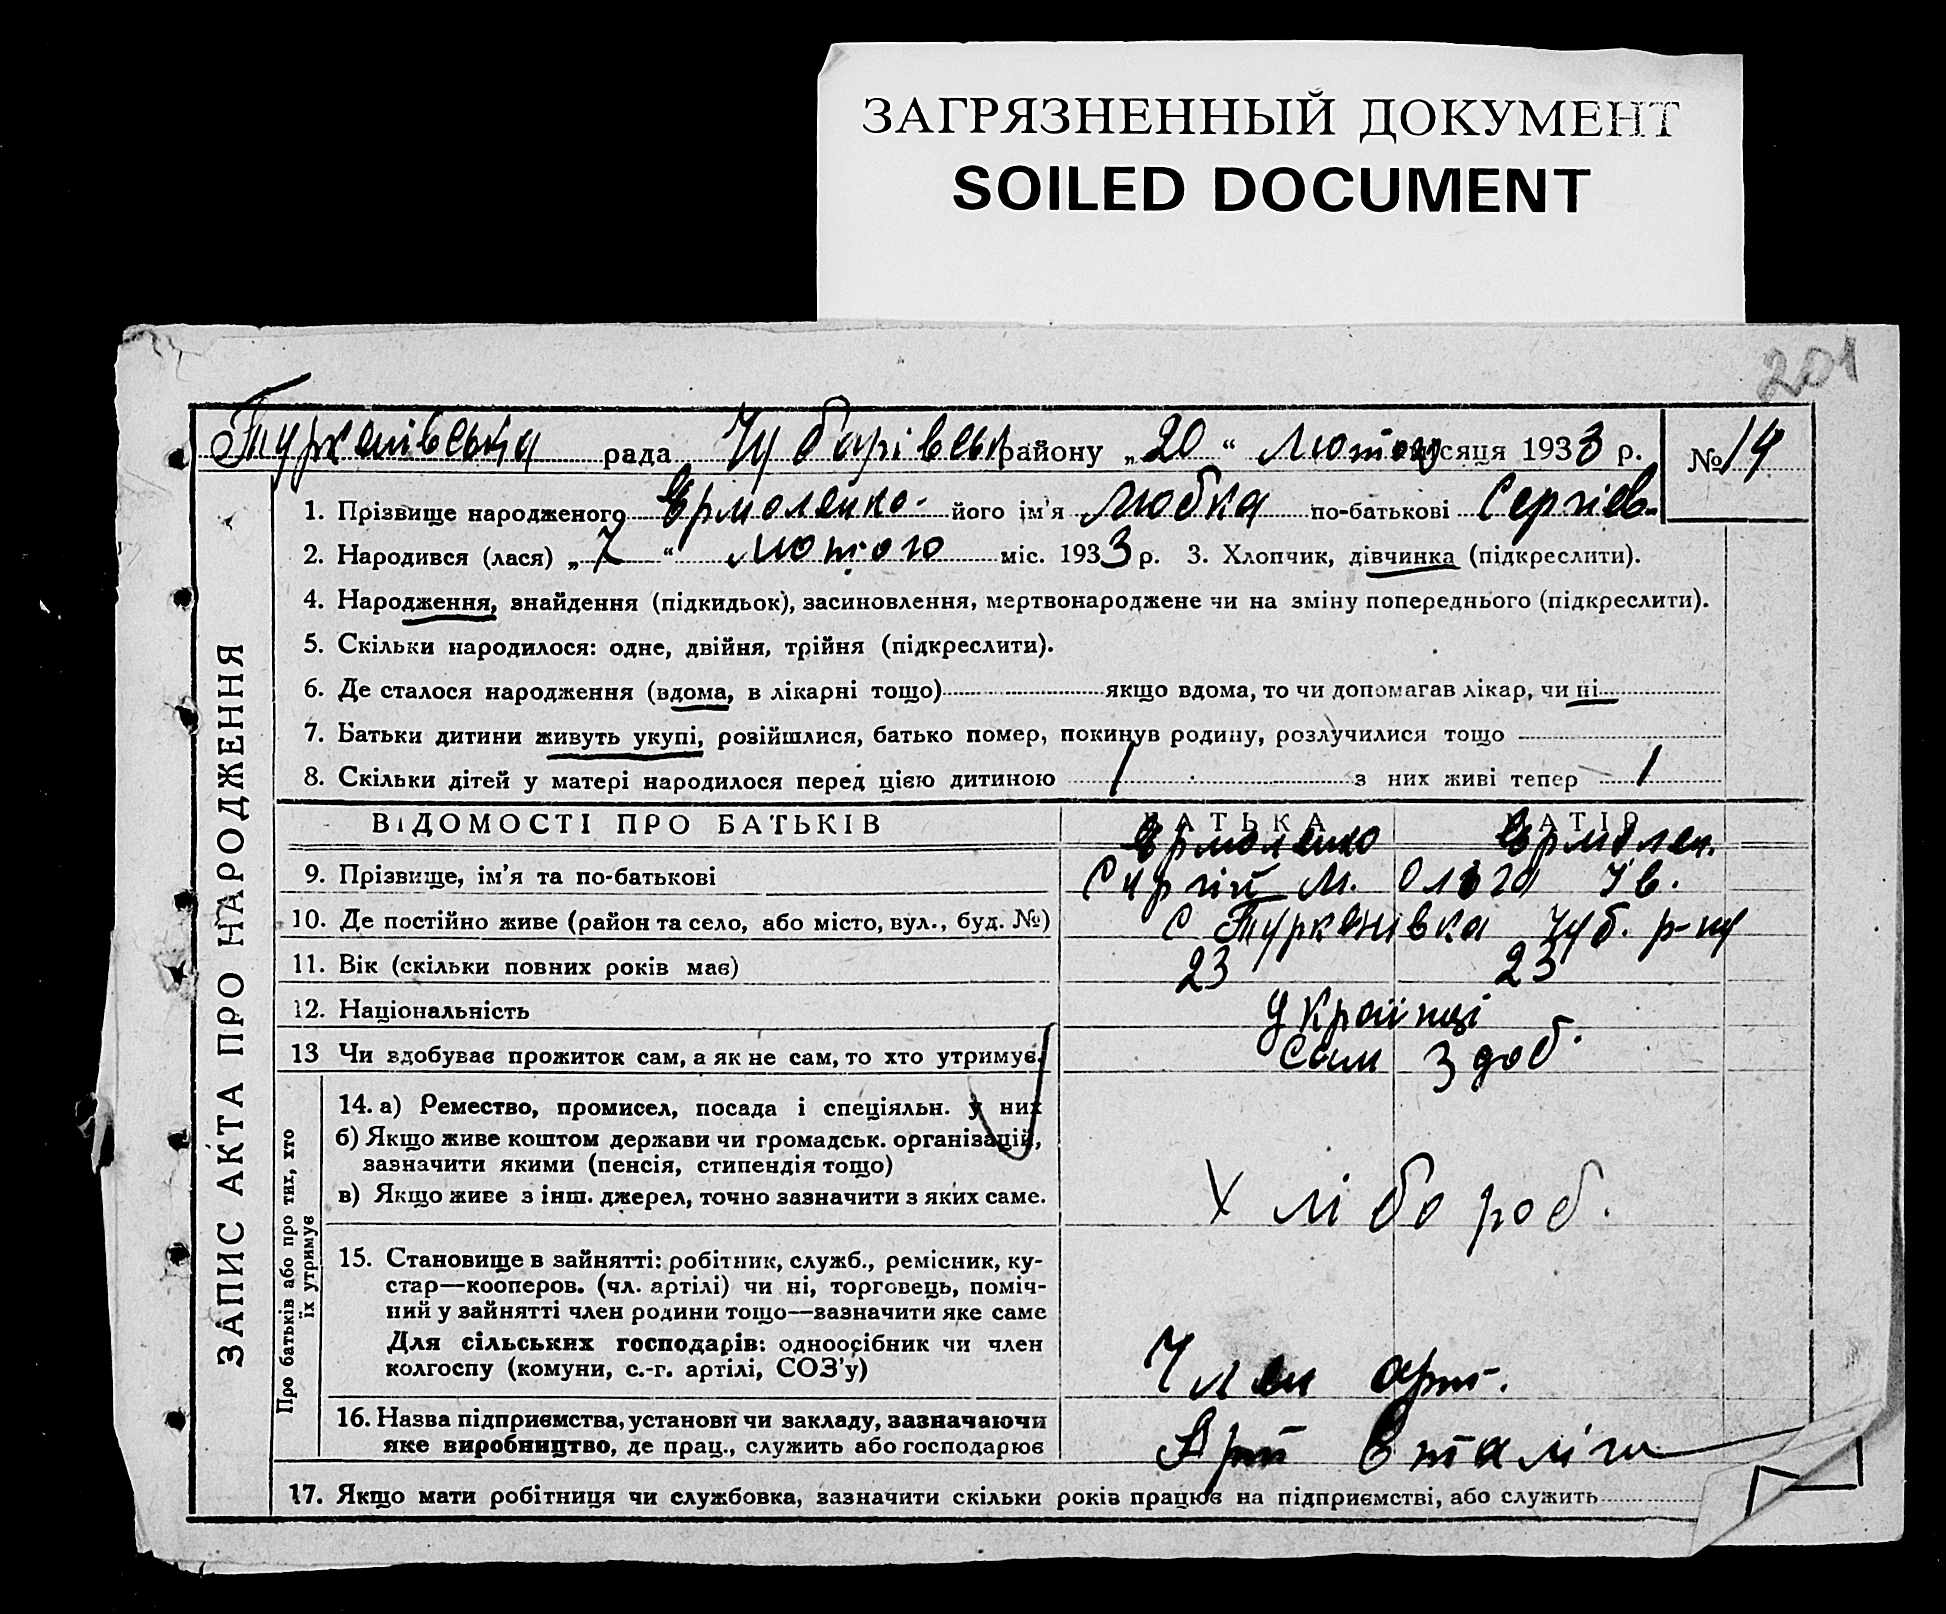 ЗАГРЯЗНЕННЫЙ ДОКУМЕНТ
SOILED DOCUMENT
201
Туркенівська рада Чубарівськ району „20“ Лютого місяця 1933 р. № 14
1. Прізвище народженого Єрмоленко його ім'я Любка по-батькові Сергіев.
2. Народився (лася) „7“ лютого міс. 1933 р. 3. Хлопчик, дівчинка (підкреслити).
4. Народження, знайдення (підкидьок), засиновлення, мертвонароджене чи на зміну попереднього (підкреслити).
5. Скільки народилося: одне, двійня, трійня (підкреслити).
6. Де сталося народження (вдома, в лікарні тощо) якщо вдома, то чи допомагав лікар, чи ні
7. Батьки дитини живуть укупі, розійшлися, батько помер, покинув родину, розлучилися тощо
8. Скільки дітей у матері народилося перед цією дитиною 1 з них живі тепер 1
ВІДОМОСТІ ПРО БАТЬКІВ БАТЬКА МАТІР
Єрмоленко Єрмолен.
9. Прізвище, ім'я та по-батькові Сергій М. Ольга Ів.
10. Де постійно живе (район та село, або місто, вул., буд. №) С Туркенівка Чуб. р-ну
11. Вік (скільки повних років має) 23 23
12. Національність Українці
13 Чи здобуває прожиток сам, а як не сам, то хто утримує. Сам Здоб.
14. а) Ремество, промисел, посада і спеціяльн. у них
б) Якщо живе коштом держави чи громадськ. організацій,
зазначити якими (пенсія, стипендія тощо)
в) Якщо живе з інш. джерел, точно зазначити з яких саме.
Хлібороб.
15. Становище в зайнятті: робітник, служб., ремісник, ку-
стар—кооперов. (чл. артілі) чи ні, торговець, поміч-
ний у зайнятті член родини тощо—зазначити яке саме
Для сільських господарів: одноосібник чи член
колгоспу (комуни, с.-г. артілі, СОЗ'у)
Член арт.
16. Назва підприємства, установи чи закладу, зазначаючи
яке виробництво, де прац., служить або господарює
Арт Сталін
17. Якщо мати робітниця чи службовка, зазначити скільки років працює на підприємстві, або служить
ЗАПИС АКТА ПРО НАРОДЖЕННЯ
Про батьків або про тих, хто
їх утримує